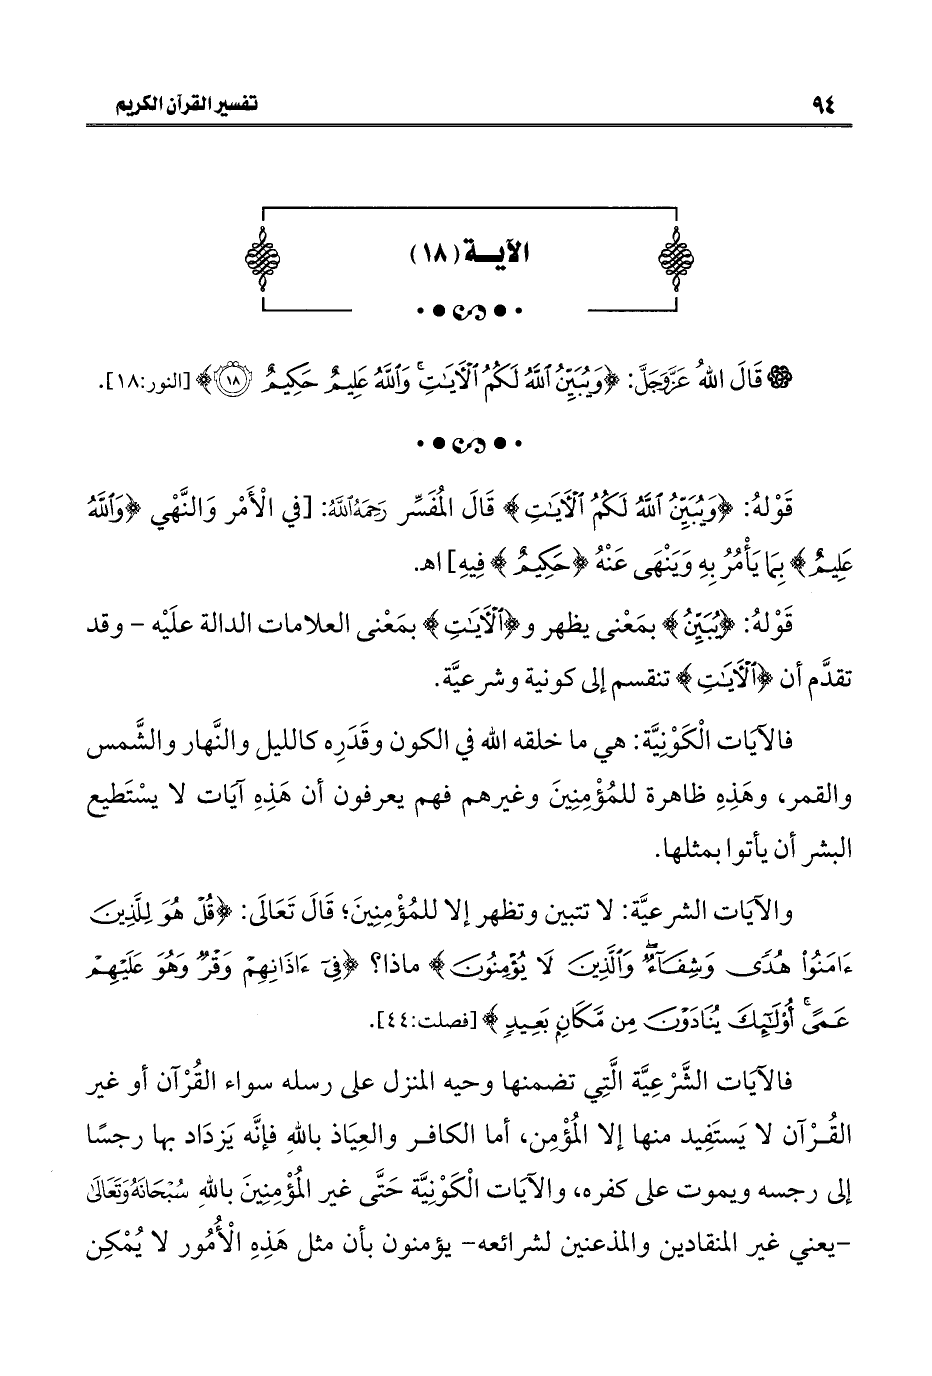 ٩٤ تفسير القرآن الكريم
الآيــة (١٨)
قَالَ اللهُ عَزَّوَجَلَّ: ﴿وَيُبَيِّنُ ٱللَّهُ لَكُمُ ٱلْآيَٰتِ ۚ وَٱللَّهُ عَلِيمٌ حَكِيمٌ ١٨﴾ [النور:١٨].
قَوْلهُ: ﴿وَيُبَيِّنُ ٱللَّهُ لَكُمُ ٱلْآيَٰتِ﴾ قَالَ المُفَسِّر رَحِمَهُ ٱللَّهُ: [في الْأَمْر وَالنَّهْي ﴿وَٱللَّهُ
عَلِيمٌ﴾ بِمَا يَأْمُرُ بِهِ وَيَنْهَى عَنْهُ ﴿حَكِيمٌ﴾ فِيهِ] اهـ.
قَوْلهُ: ﴿يُبَيِّنُ﴾ بمَعْنى يظهر و﴿ٱلْآيَٰتِ﴾ بمَعْنى العلامات الدالة علَيْه - وقد
تقدَّم أن ﴿ٱلْآيَٰتِ﴾ تنقسم إلى كونية وشرعيَّة.
فالآيَات الْكَوْنِيَّة: هي ما خلقه الله في الكون وقَدَره كالليل والنَّهار والشَّمس
والقمر، وهَذِهِ ظاهرة للمُؤْمِنِينَ وغيرهم فهم يعرفون أن هَذِهِ آيَات لا يسْتَطيع
البشر أن يأتوا بمثلها.
والآيَات الشرعيَّة: لا تتبين وتظهر إلا للمُؤْمِنِينَ؛ قَالَ تَعَالَى: ﴿قُلْ هُوَ لِلَّذِينَ
ءَامَنُوا۟ هُدًى وَشِفَآءٌ ۖ وَٱلَّذِينَ لَا يُؤْمِنُونَ﴾ ماذا؟ ﴿فِىٓ ءَاذَانِهِمْ وَقْرٌ وَهُوَ عَلَيْهِمْ
عَمًى ۚ أُو۟لَٰٓئِكَ يُنَادَوْنَ مِن مَّكَانٍۭ بَعِيدٍ﴾ [فصلت:٤٤].
فالآيَات الشَّرْعِيَّة الَّتِي تضمنها وحيه المنزل على رسله سواء القُرْآن أو غير
القُرْآن لا يَستَفِيد منها إلا المُؤْمِن، أما الكافر والعِيَاذ باللهِ فإنَّه يَزدَاد بها رجسًا
إلى رجسه ويموت على كفره، والآيَات الْكَوْنِيَّة حَتَّى غير المُؤْمِنِينَ باللهِ سُبْحَانَهُ وَتَعَالَى
-يعني غير المنقادين والمذعنين لشرائعه- يؤمنون بأن مثل هَذِهِ الْأُمُور لا يُمْكِن